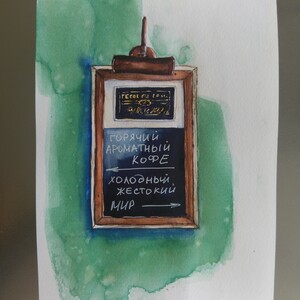 ГОРЯЧИЙ
АРОМАТНЫЙ
КОФЕ
ХОЛОДНЫЙ
ЖЕСТОКИЙ
МИР